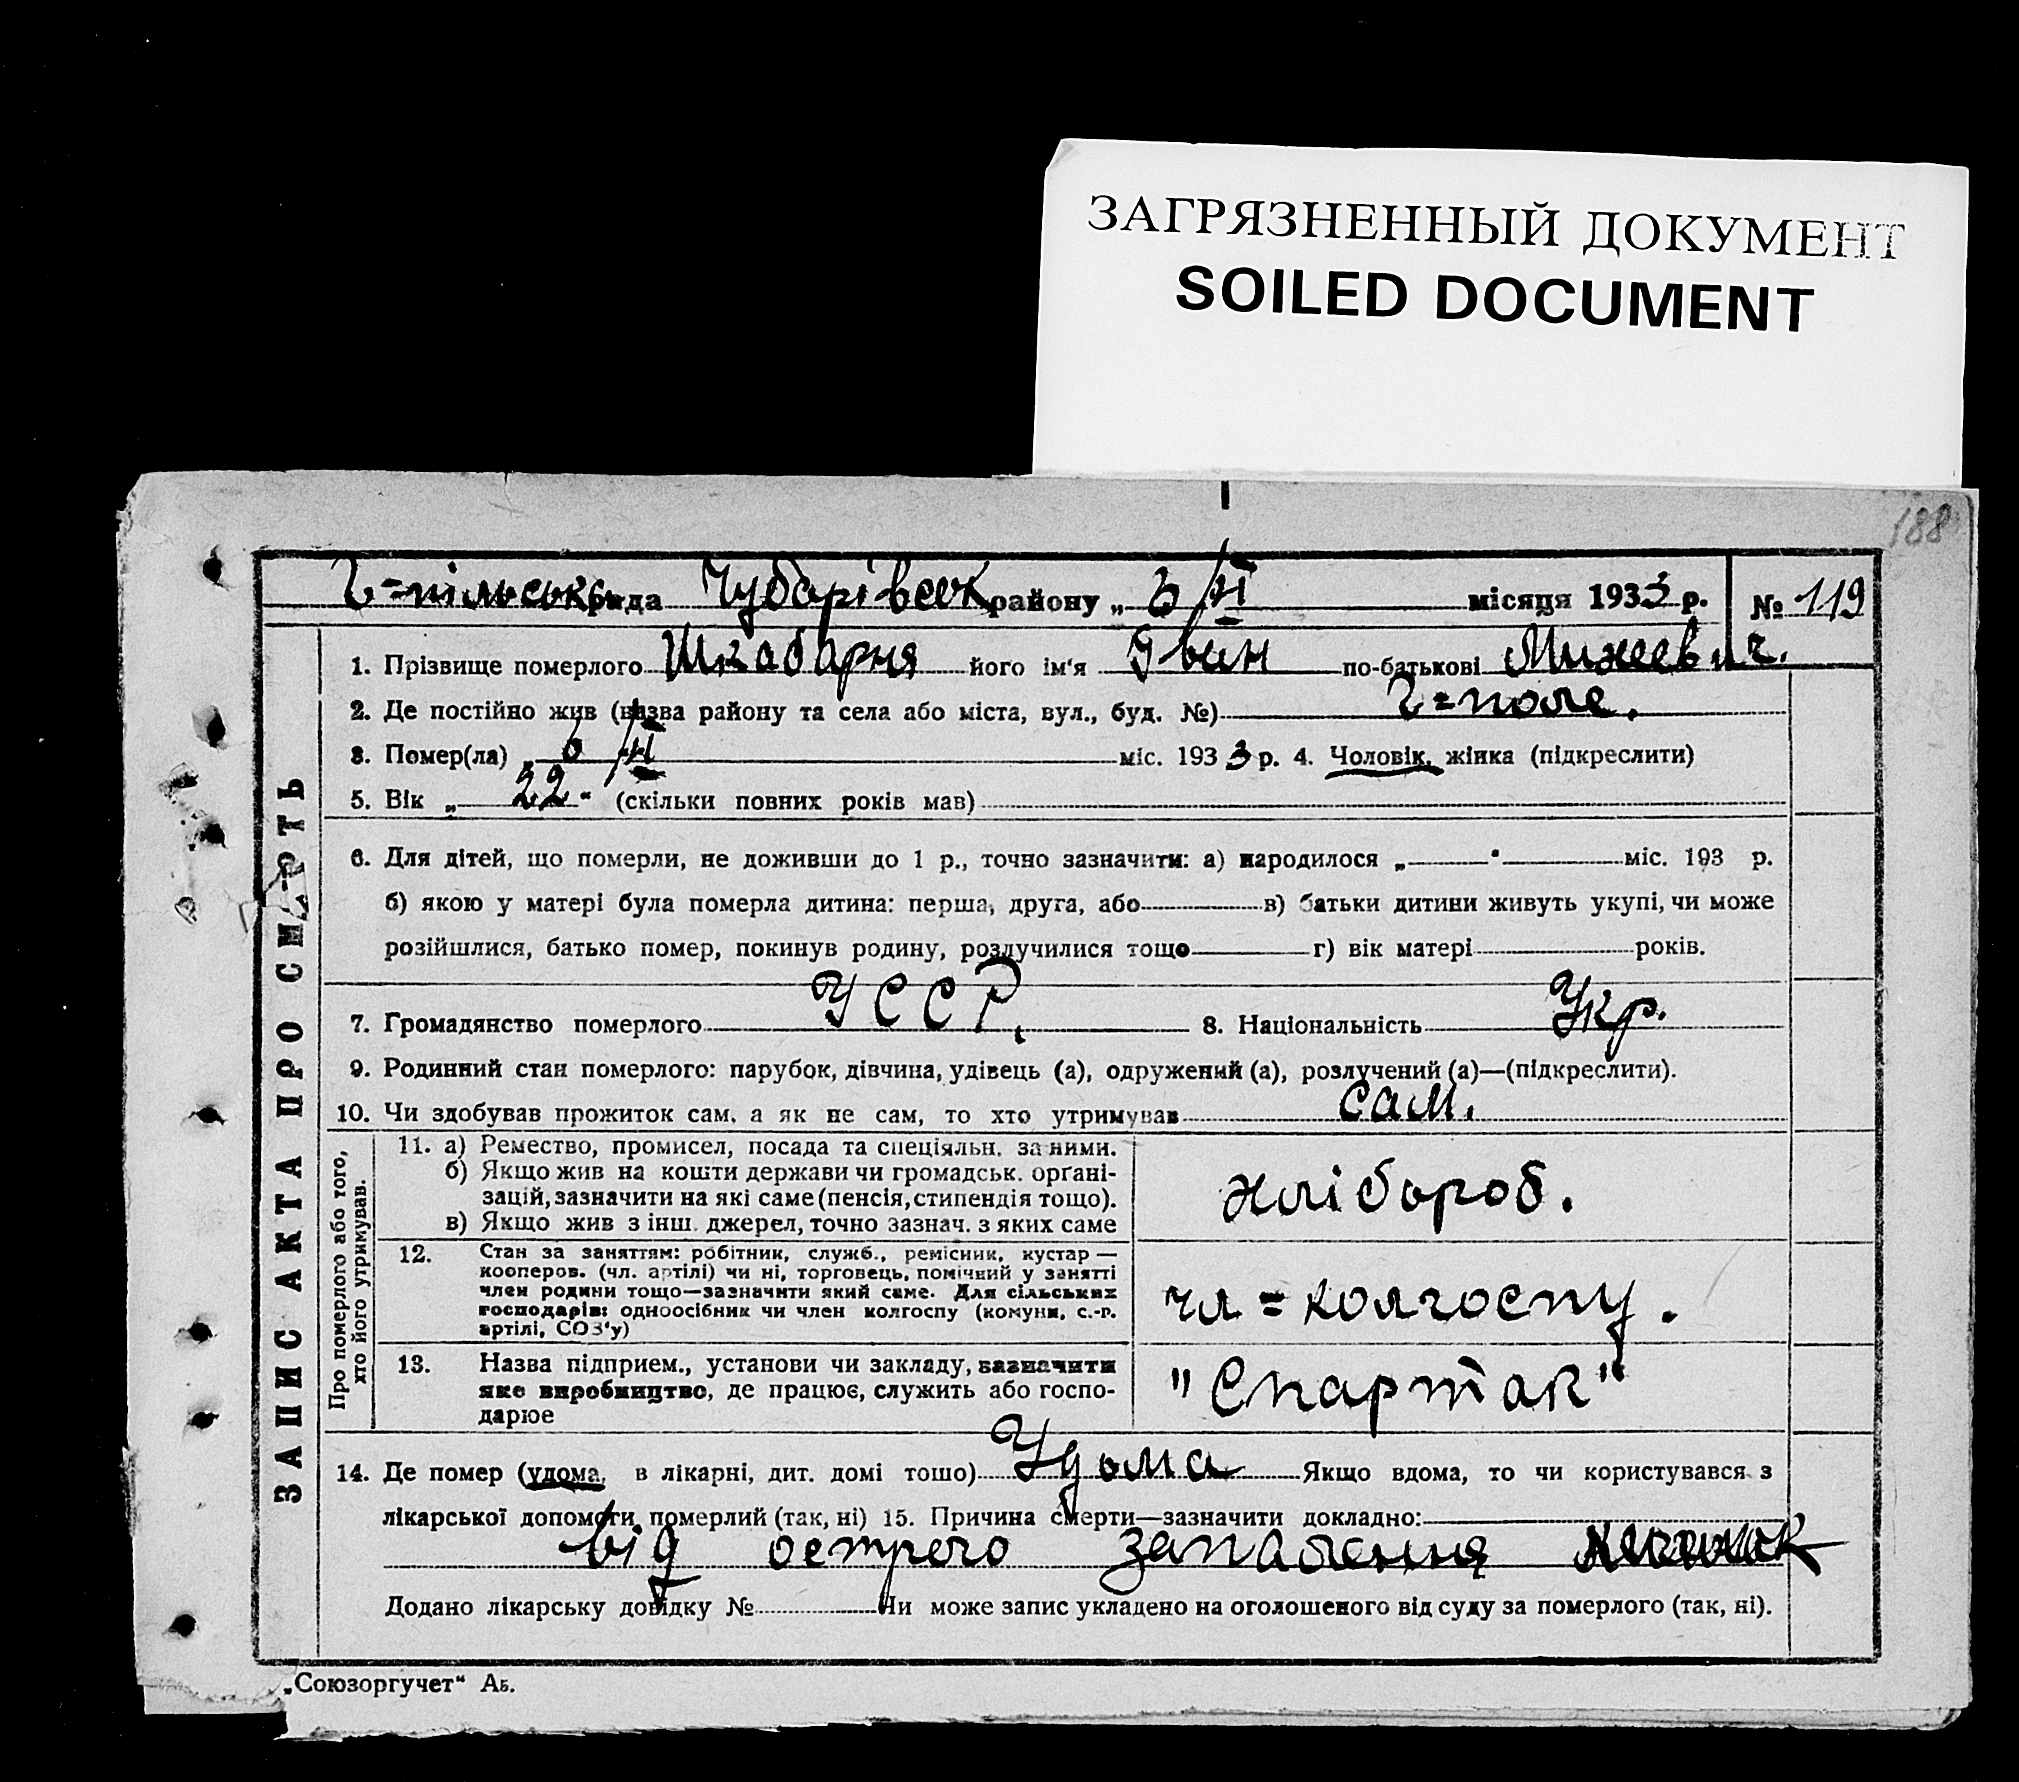 ЗАГРЯЗНЕННЫЙ ДОКУМЕНТ
SOILED DOCUMENT
188
Г=пільська рада Чубарівськ району „ 6/VI місяця 1933 р. № 119
ЗАПИС АКТА ПРО СМЕРТЬ
1. Прізвище померлого Шкабарня його ім'я Яван по-батькові
2. Де постійно жив (назва району та села або міста, вул., буд. №) Г=поле.
3. Помер(ла) „ 6/VI міс. 1933 р. 4. Чоловік, жінка (підкреслити)
5. Вік „ 22 “ (скільки повних років мав)
6. Для дітей, що померли, не доживши до 1 р., точно зазначити: а) народилося „ “ міс. 193 р.
б) якою у матері була померла дитина: перша, друга, або в) батьки дитини живуть укупі, чи може
розійшлися, батько помер, покинув родину, розлучилися тощо г) вік матері років.
7. Громадянство померлого УССР. 8. Національність Укр.
9. Родинний стан померлого: парубок, дівчина, удівець (а), одружений (а), розлучений (а)—(підкреслити).
10. Чи здобував прожиток сам, а як не сам, то хто утримував сам.
Про померлого або того,
хто його утримував.
11. а) Ремество, промисел, посада та спеціяльн. за ними.
б) Якщо жив на кошти держави чи громадськ. орґані-
зацій, зазначити на які саме (пенсія, стипендія тощо).
в) Якщо жив з інш. джерел, точно зазнач. з яких саме
хлібороб.
12. Стан за заняттям: робітник, служб., ремісник, кустар —
кооперов. (чл. артілі) чи ні, торговець, помічний у занятті
член родини тощо—зазначити який саме. Для сільських
господарів: одноосібник чи член колгоспу (комуни, с.-г.
артілі, СОЗ'у)
чл=колгоспу.
13. Назва підприєм., установи чи закладу, зазначити
яке виробництво, де працює, служить або госпо-
дарює
"Спартак"
14. Де помер (удома, в лікарні, дит. домі тощо) Удома Якщо вдома, то чи користувався з
лікарської допомоги померлий (так, ні) 15. Причина смерти—зазначити докладно:
від острого запалення
Додано лікарську довідку № Чи може запис укладено на оголошеного від суду за померлого (так, ні).
„Союзоргучет“ Аб.